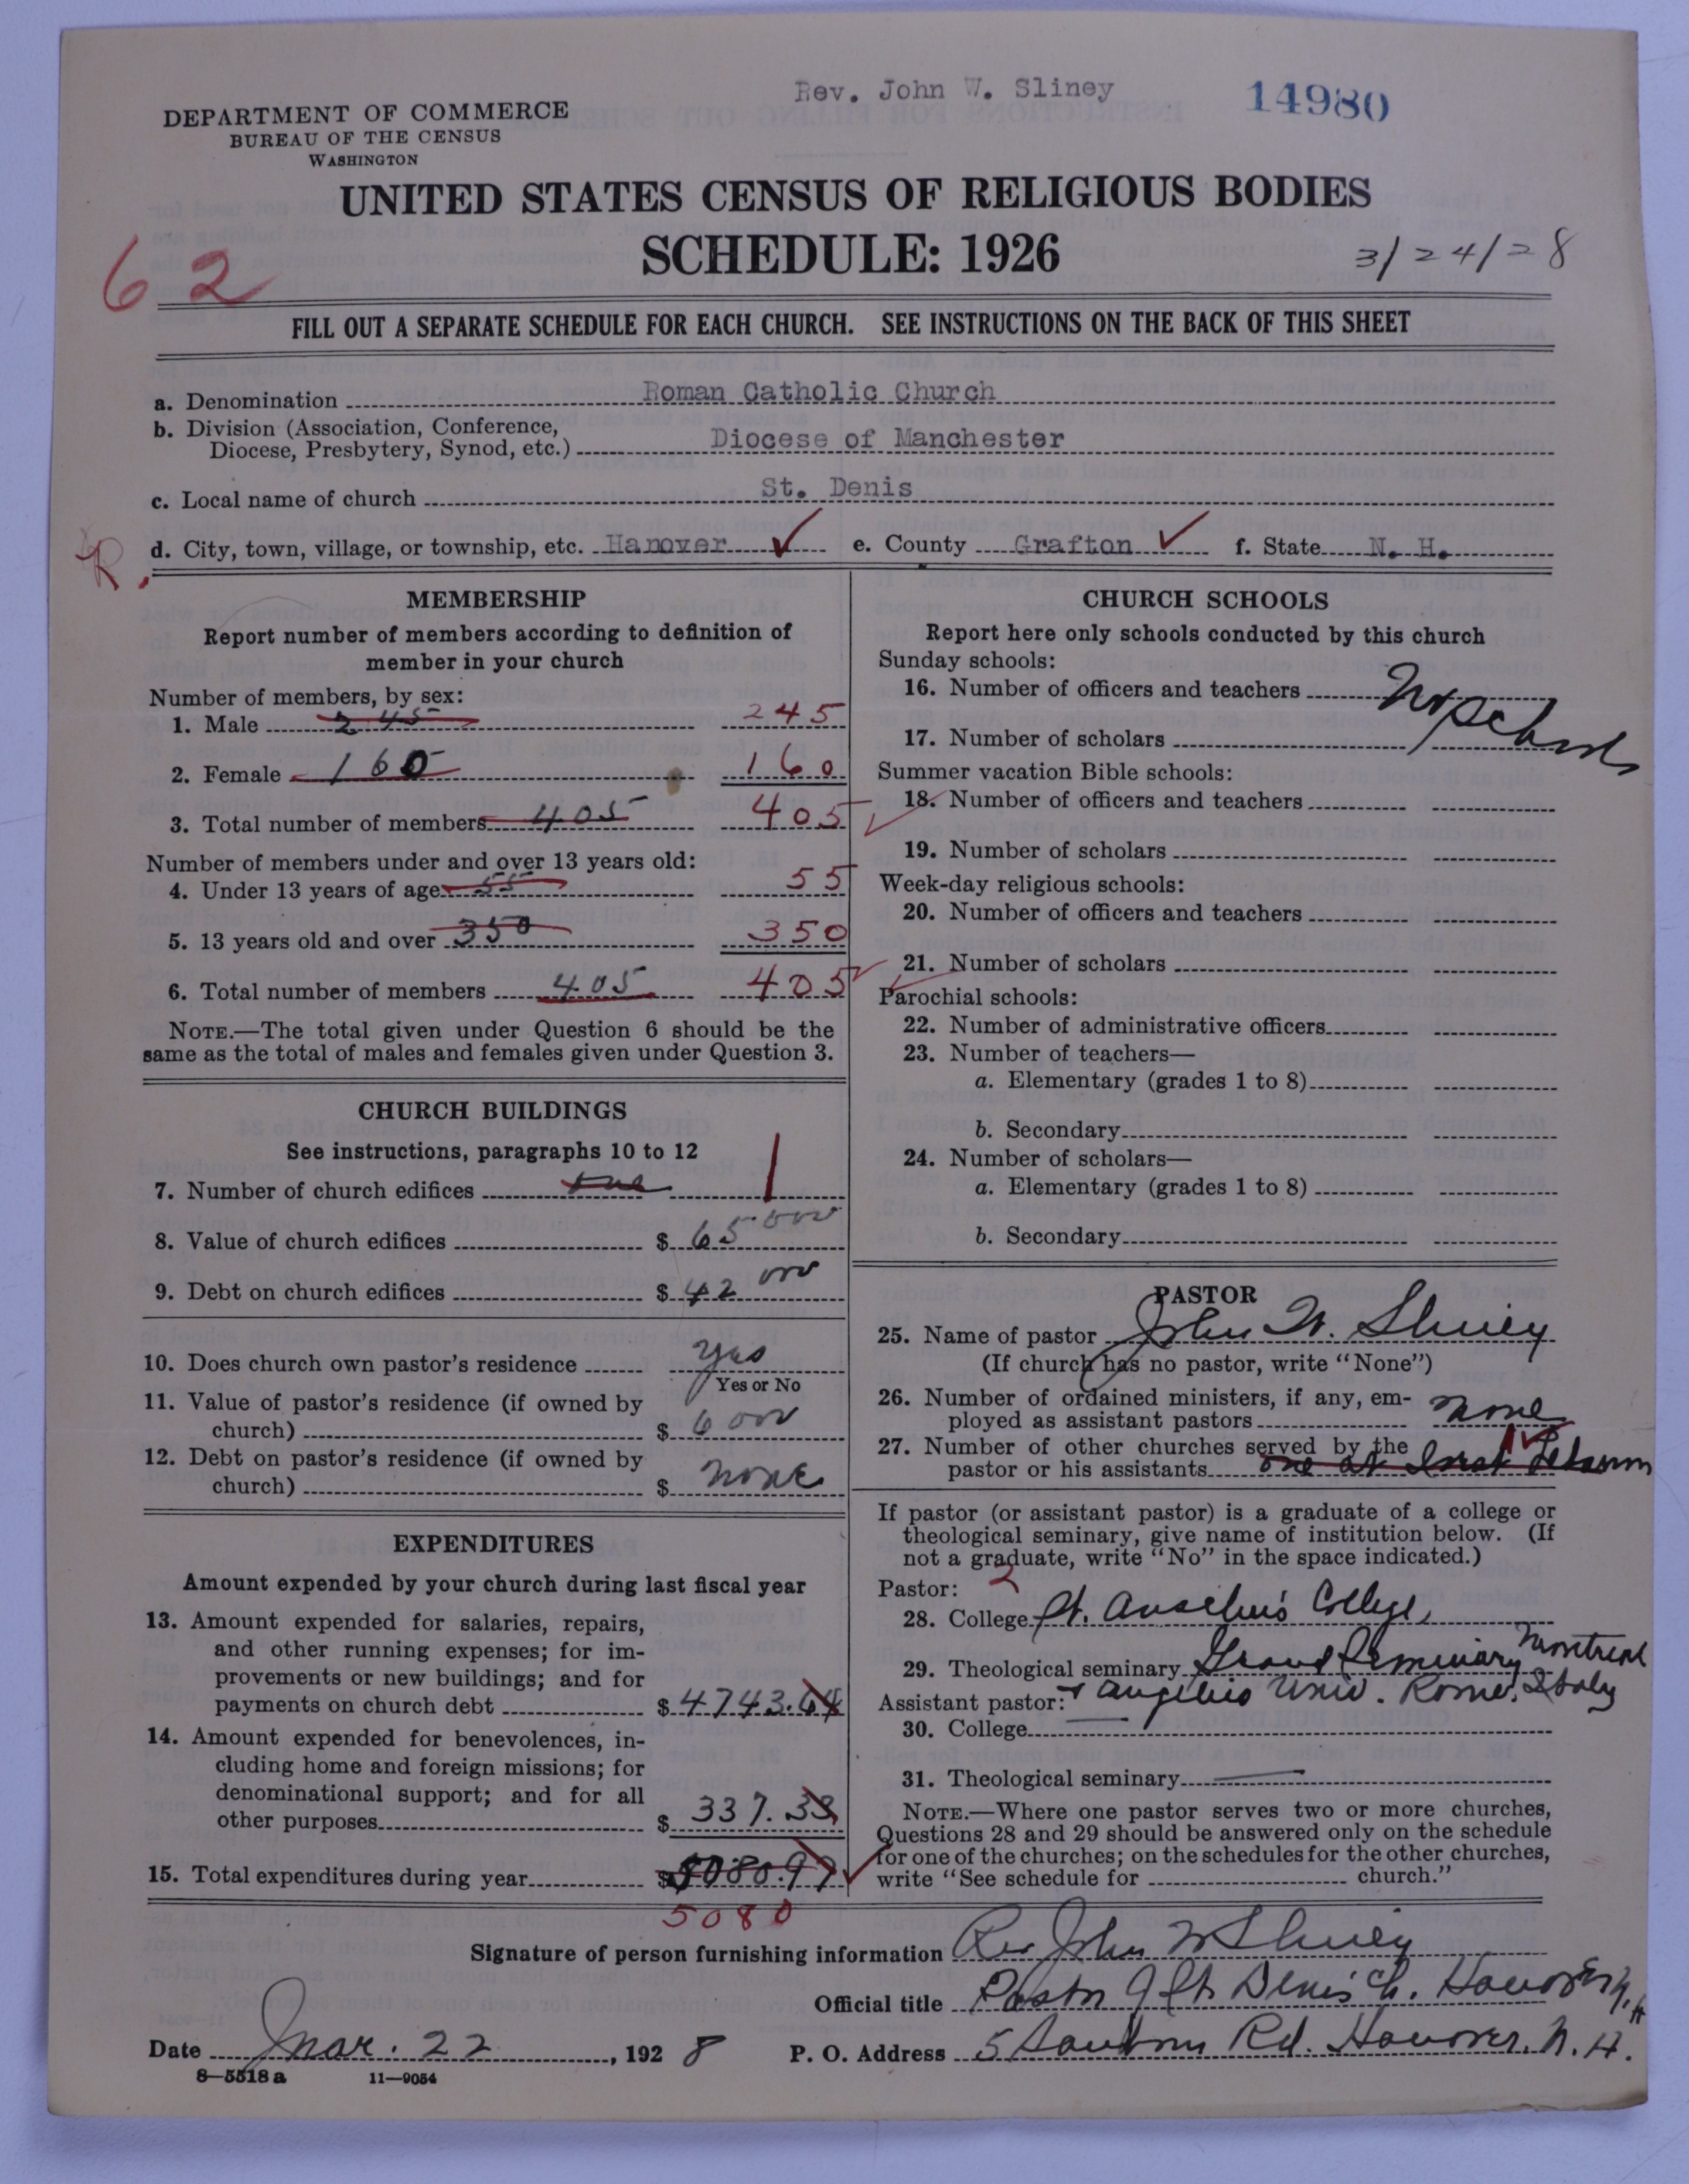 Rev. John W. Sliney
14980
DEPARTMENT OF COMMERCE
BUREAU OF THE CENSUS
WASHINGTON
UNITED STATES CENSUS OF RELIGIOUS BODIES
SCHEDULE: 1926
3/24/28
62
FILL OUT A SEPARATE SCHEDULE FOR EACH CHURCH. SEE INSTRUCTIONS ON THE BACK OF THIS SHEET
a. Denomination Roman Catholic Church
b. Division (Association, Conference,
Diocese, Presbytery, Synod, etc.) Diocese of Manchester
c. Local name of church St. Denis
R.
d. City, town, village, or township, etc. Hanover ✓ e. County Grafton ✓ f. State N. H.
MEMBERSHIP
Report number of members according to definition of
member in your church
Number of members, by sex:
1. Male 245 245
2. Female 160 160
3. Total number of members 405 405
Number of members under and over 13 years old:
4. Under 13 years of age 55 55
5. 13 years old and over 350 350
6. Total number of members 405 405
NOTE.—The total given under Question 6 should be the
same as the total of males and females given under Question 3.
CHURCH BUILDINGS
See instructions, paragraphs 10 to 12
7. Number of church edifices one 1
8. Value of church edifices $ 65000
9. Debt on church edifices $ 42000
10. Does church own pastor's residence yes
Yes or No
11. Value of pastor's residence (if owned by
church) $ 6000
12. Debt on pastor's residence (if owned by
church) $ none
EXPENDITURES
Amount expended by your church during last fiscal year
13. Amount expended for salaries, repairs,
and other running expenses; for im-
provements or new buildings; and for
payments on church debt $ 4743.64
14. Amount expended for benevolences, in-
cluding home and foreign missions; for
denominational support; and for all
other purposes $ 337.33
15. Total expenditures during year $ 5080.97
5080
CHURCH SCHOOLS
Report here only schools conducted by this church
Sunday schools:
16. Number of officers and teachers No school
17. Number of scholars
Summer vacation Bible schools:
18. Number of officers and teachers
19. Number of scholars
Week-day religious schools:
20. Number of officers and teachers
21. Number of scholars
Parochial schools:
22. Number of administrative officers
23. Number of teachers—
a. Elementary (grades 1 to 8)
b. Secondary
24. Number of scholars—
a. Elementary (grades 1 to 8)
b. Secondary
PASTOR
25. Name of pastor John W. Sliney
(If church has no pastor, write "None")
26. Number of ordained ministers, if any, em-
ployed as assistant pastors none
27. Number of other churches served by the 1
pastor or his assistants one at West Lebanon
If pastor (or assistant pastor) is a graduate of a college or
theological seminary, give name of institution below. (If
not a graduate, write "No" in the space indicated.)
Pastor: 2
28. College St. Anselm's College,
29. Theological seminary Grand Seminary Montreal
Assistant pastor: + Angelico Univ. Rome, Italy
30. College
31. Theological seminary
NOTE.—Where one pastor serves two or more churches,
Questions 28 and 29 should be answered only on the schedule
for one of the churches; on the schedules for the other churches,
write "See schedule for church."
Signature of person furnishing information Rev John W Sliney
Official title Pastor of St. Denis Ch. Hanover N. H
Date Mar. 22, 1928 P. O. Address 5 Sanborn Rd. Hanover, N. H.
8—5518 a 11—9054